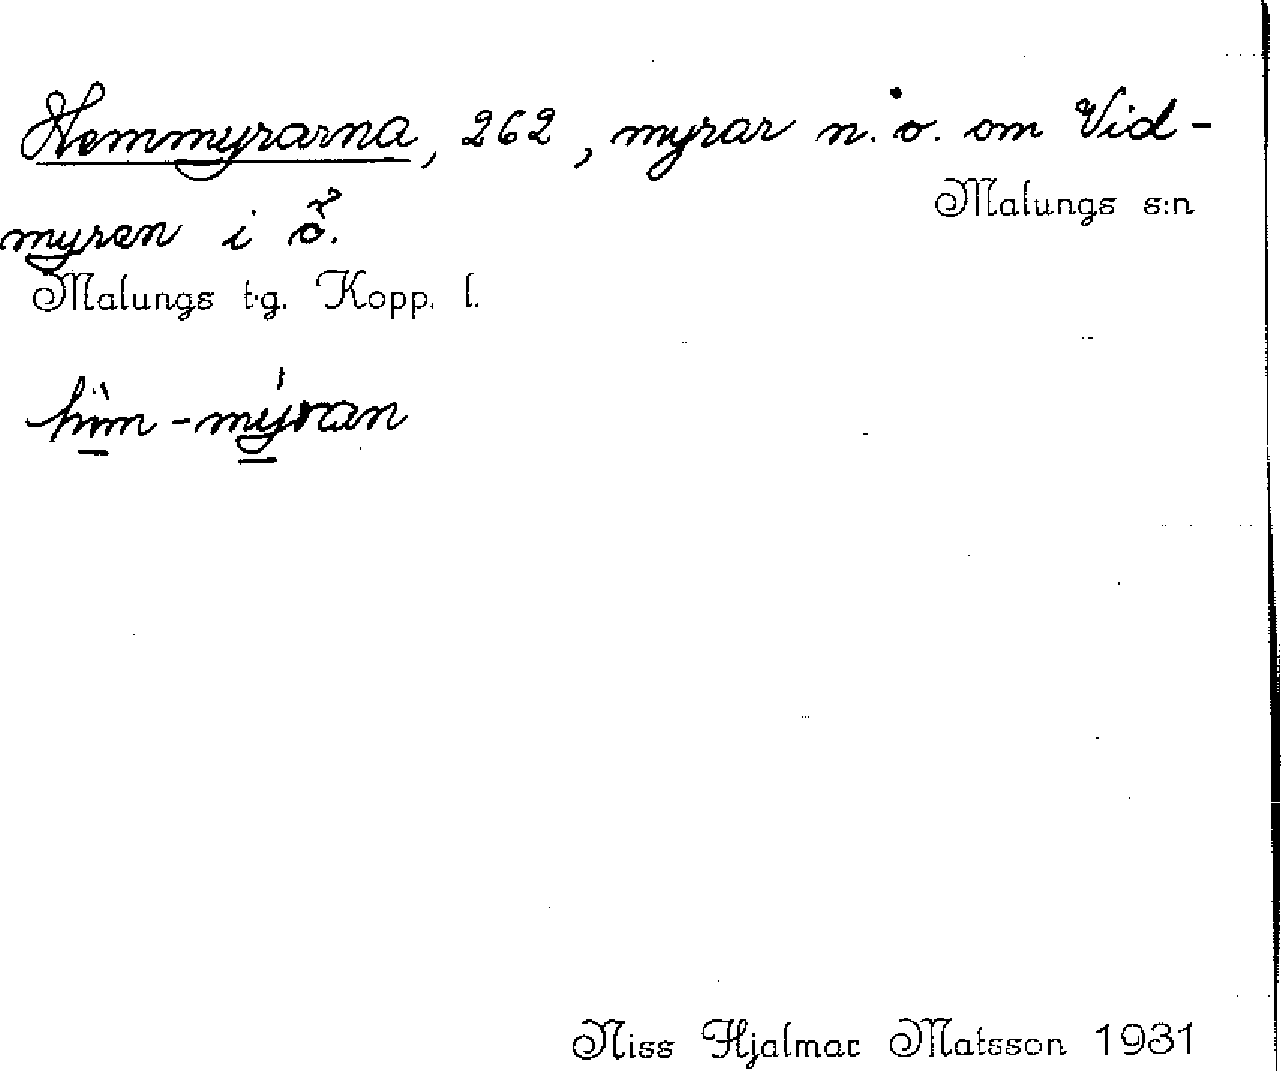 Hemmyrarna, 262, myrar n. o. om Vid-
Malungs s:n
myren i ö.
Malungs tg. Kopp. l.
him-mýran
Niss Hjalmar Matsson 1931